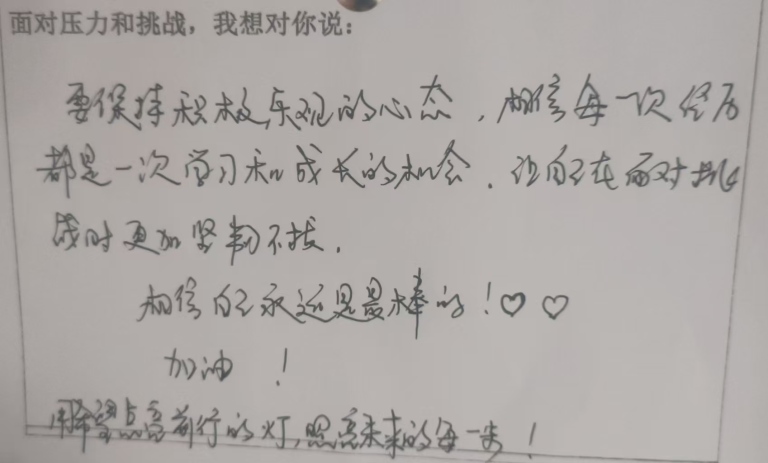 面对压力和挑战，我想对你说：
要保持积极乐观的心态，相信每一次经历
都是一次学习和成长的机会，让自己在面对挑
战时更加坚韧不拔。
相信自己永远是最棒的！♡♡
加油！
用希望点亮前行的灯，照亮未来的每一步！